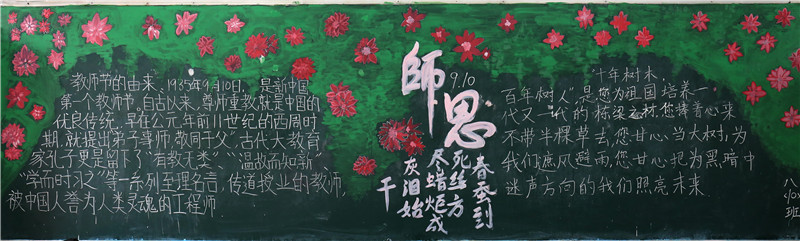 教师节的由来、1935年9月10日，是新中国
第一个教师节。自古以来，尊师重教就是中国的
优良传统，早在公元年前11世纪的西周时
期，就提出弟子事师，敬同于父”，古代大教育
家孔子更是留下了“有教无类”“温故而知新”，
“学而时习之”等一系列至理名言，传道授业的教师，
被中国人誉为人类灵魂的工程师
師恩
9.10
春蚕到
死丝方
尽蜡炬成
灰泪始
干
“十年树木，
百年树人”，是您为祖国培养一
代又一代的栋梁之材，您捧着心来
不带半棵草去，您甘心当大树，为
我们遮风避雨，您甘心把为黑暗中
迷声方向的我们照亮未来
八
班